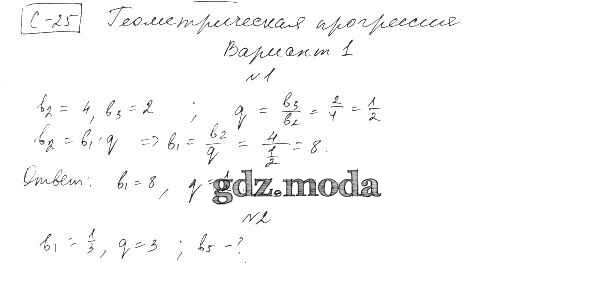 С-25 Геометрическая прогрессия
Вариант 1
№1
b₂ = 4, b₃ = 2 ; q = b₃/b₂ = 2/4 = 1/2
b₂ = b₁·q => b₁ = b₂/q = 4/(1/2) = 8.
Ответ: b₁ = 8, q =
gdz.moda
№2
b₁ = 1/3, q = 3 ; b₅ - ?